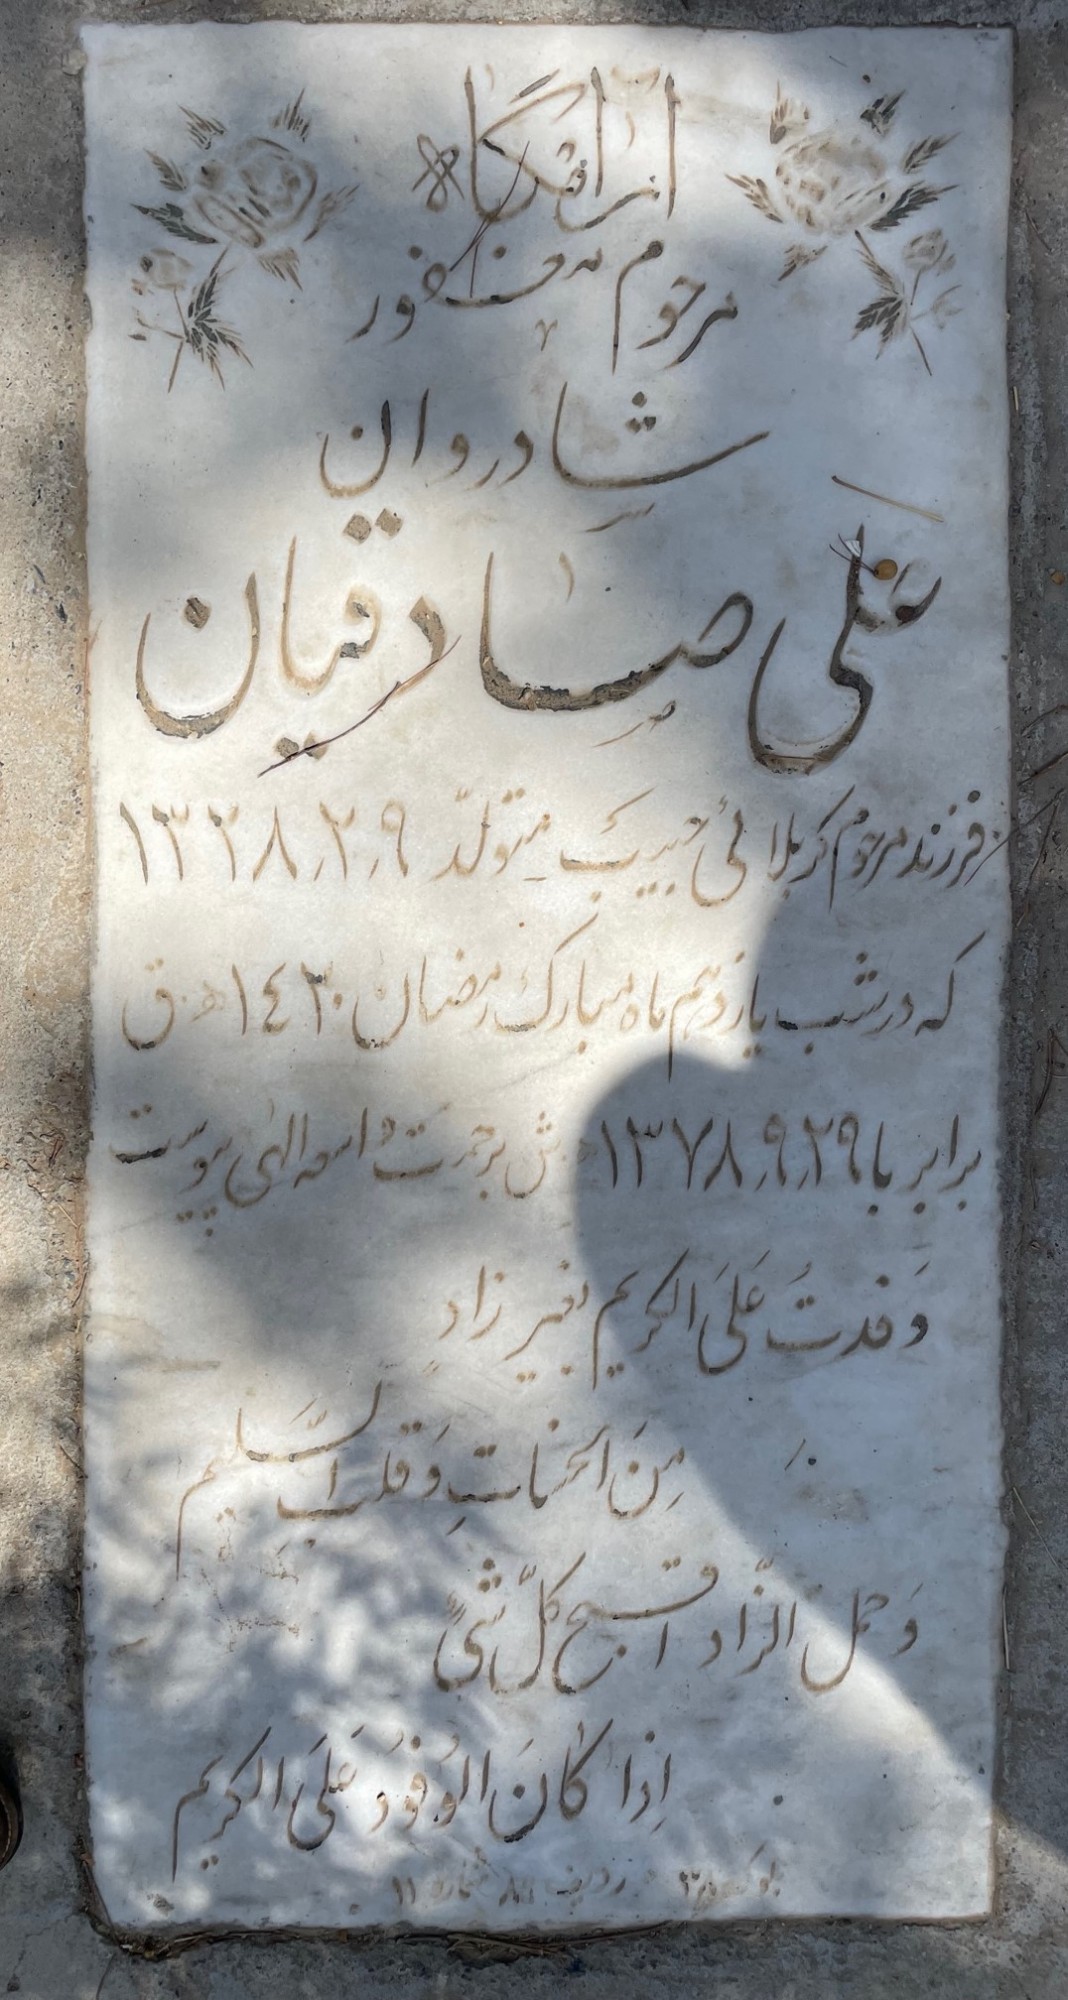 آرامگاه
مرحوم مغفور
شادروان
علی صادقیان
فرزند مرحوم کربلائی حبیب متولد ۱۳۲۸٫۲٫۹
که در شب یازدهم ماه مبارک رمضان ۱٤۲۰ ه‍.ق
برابر با ۱۳۷۸٫۹٫۲۹ ه‍.ش برحمت واسعه الهی پیوست
وَفدتُ عَلَی الکریم بغیر زاد
مِنَ الحسناتِ وَ قلب السَّلیم
وَ حمل الزّاد اقبح کلّ شیٍ
اِذا کانَ الوُفُودُ عَلَی الکریم
بلوک ۳۸ ردیف شماره ۱۱